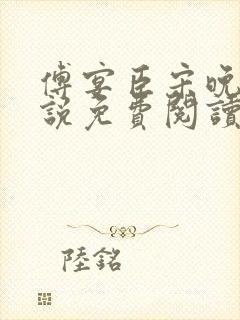 傅宴臣宋晚
説免費閱讀
陸銘